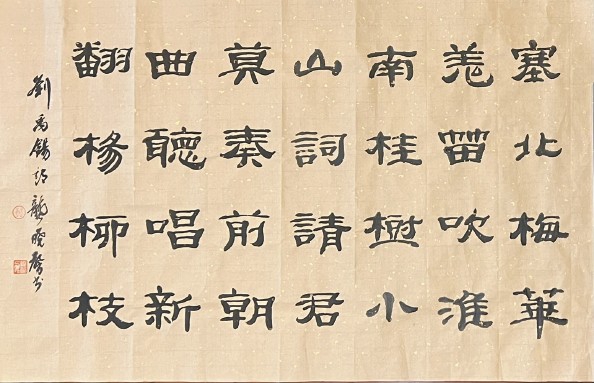 塞北梅華
羗笛吹淮
南桂樹小
山詞請君
莫奏前朝
曲聽唱新
翻楊柳枝
劉禹錫詩 龔